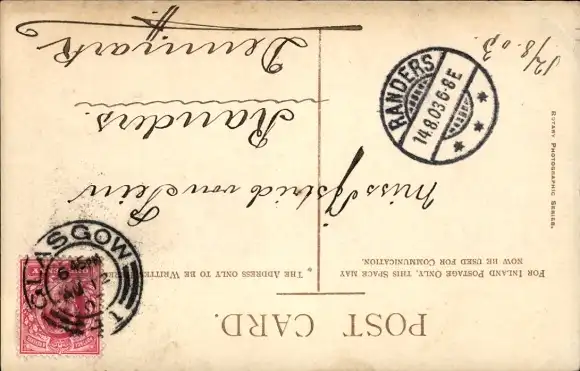 POST CARD.
FOR INLAND POSTAGE ONLY, THIS SPACE MAY
NOW BE USED FOR COMMUNICATION.
THE ADDRESS ONLY TO BE WRITTEN
ROTARY PHOTOGRAPHIC SERIES.
GLASGOW
6 45 PM
AU 12
RANDERS
14.8.03 6-8 E
12/8.03.
Miss Astrid von Stein
Randers.
Denmark